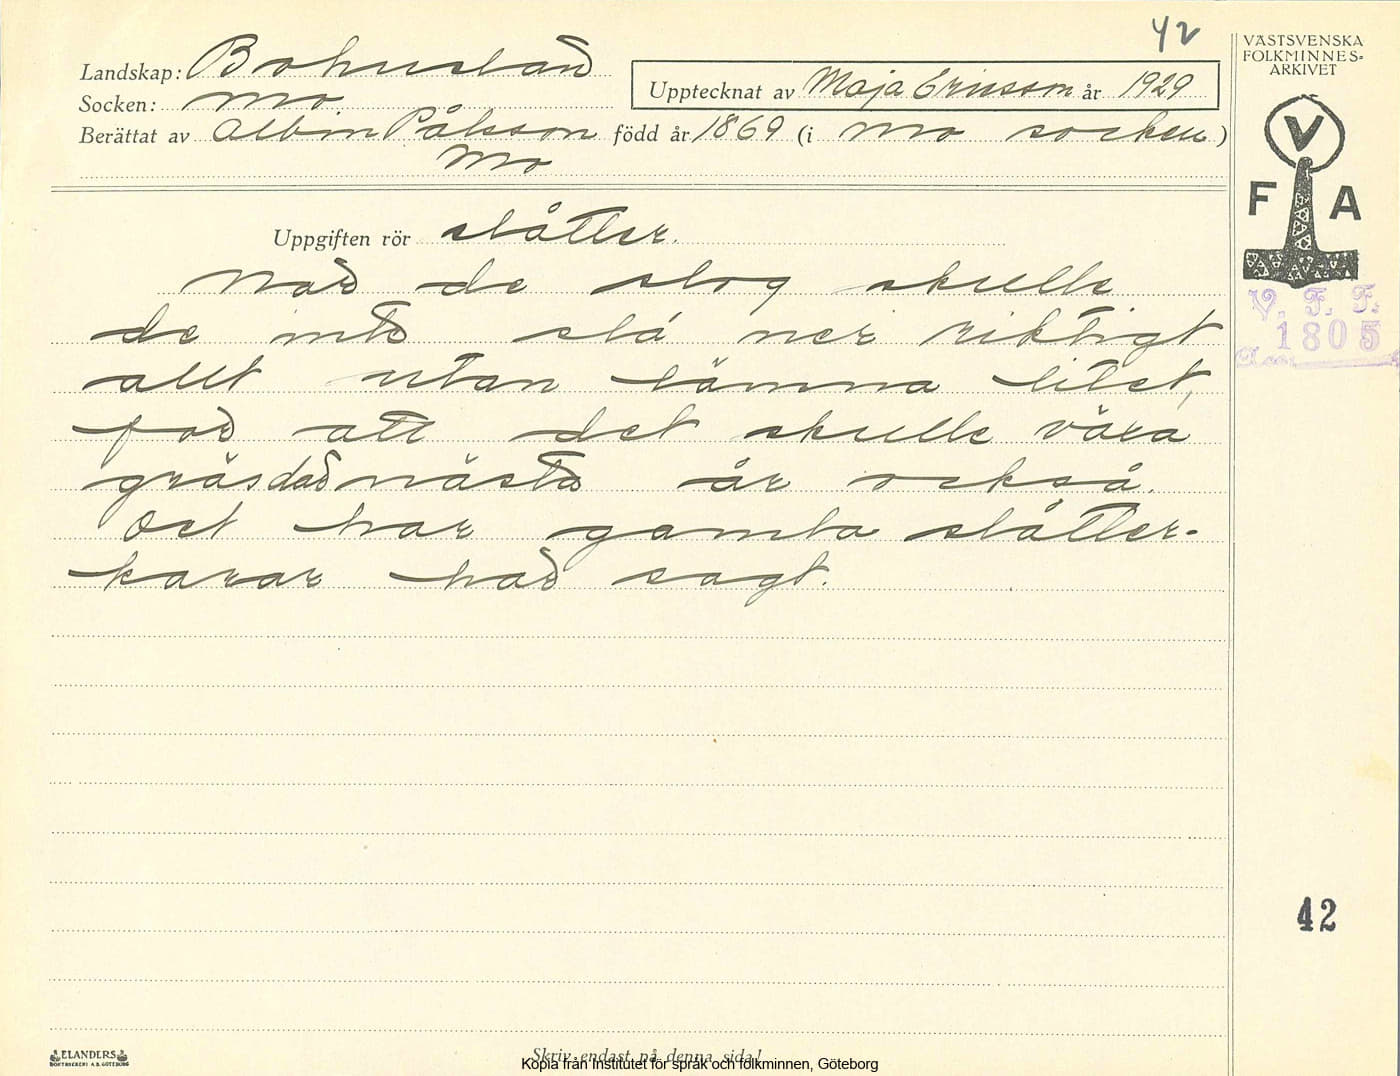 42
VÄSTSVENSKA
FOLKMINNES=
ARKIVET
Landskap: Bohuslän
Upptecknat av Maja Ericsson år 1929
Socken: Mo
Berättat av Albin Pålsson född år 1869 (i Mo socken)
Mo
V
F A
V. F. F.
1805
Uppgiften rör slåtter.
När de slog skulle
de inte slå ner riktigt
allt utan lämna litet,
för att det skulle växa
gräs där nästa år också.
Det har gamla slåtter-
karar har sagt.
42
ELANDERS
BOKTRYCKERI A.B. GÖTEBORG
Skriv endast på denna sida!
Kopia från Institutet för språk och folkminnen, Göteborg